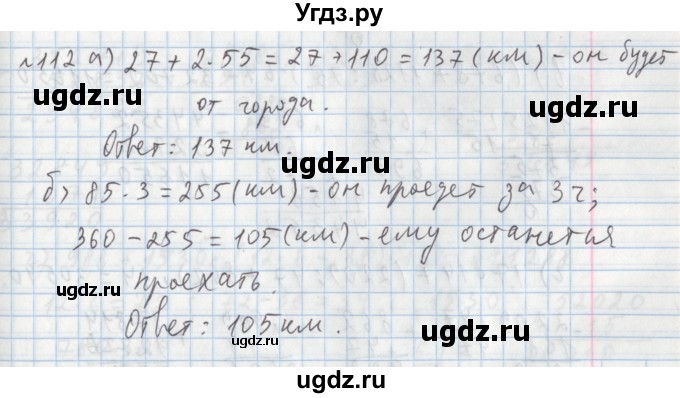 Угдз.ру
№112 а) 27 + 2·55 = 27 + 110 = 137 (км) - он будет
ugdz.ru ugdz.ru
от города.
Ответ: 137 км.
ugdz.ru
б) 85·3 = 255 (км) - он проедет за 3 ч;
360 - 255 = 105 (км) - ему останется
проехать.
ugdz.ru ugdz.ru
Ответ: 105 км.
ugdz.ru
ugdz.ru